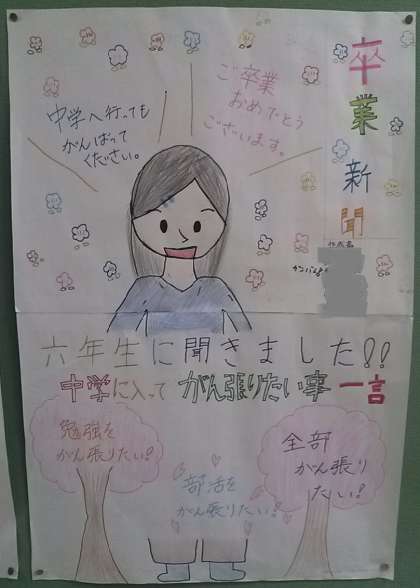 卒業新聞
ご卒業
おめでとう
ございます。
中学へ行っても
がんばって
ください。
作成者
六年生に聞きました!!
中学に入って がん張りたい事 一言
勉強を
がん張りたい!
部活を
がん張りたい!
全部
がん張り
たい!